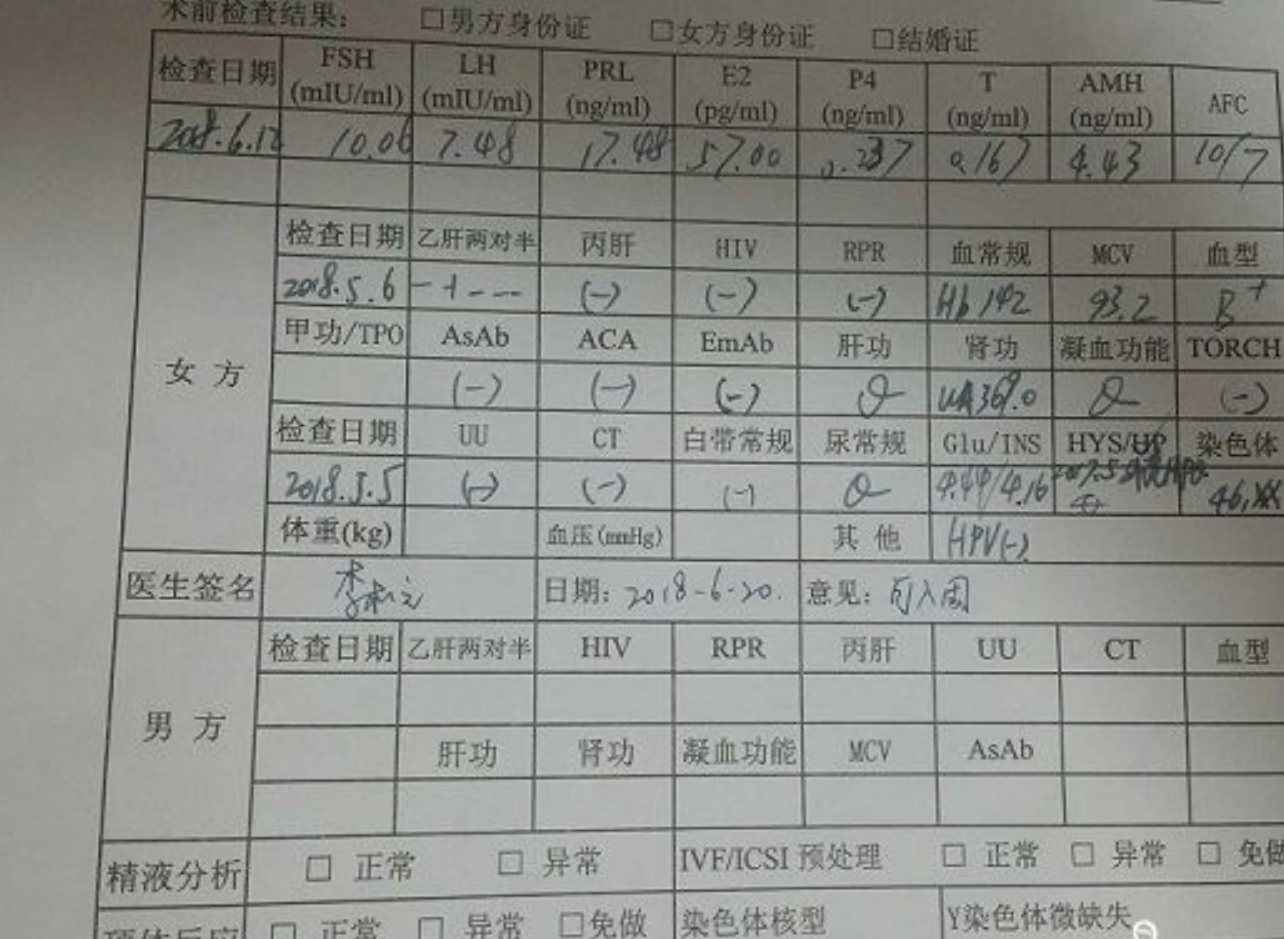 术前检查结果： □男方身份证 □女方身份证 □结婚证
检查日期 FSH (mIU/ml) LH (mIU/ml) PRL (ng/ml) E2 (pg/ml) P4 (ng/ml) T (ng/ml) AMH (ng/ml) AFC
2018.6.12 10.06 7.48 17.48 57.00 0.237 0.167 4.43 10/7
女方
检查日期 乙肝两对半 丙肝 HIV RPR 血常规 MCV 血型
2018.5.6 - + - - - (-) (-) (-) Hb 142 93.2 B+
甲功/TPO AsAb ACA EmAb 肝功 肾功 凝血功能 TORCH
(-) (-) (-) UA369.0 (-)
检查日期 UU CT 白带常规 尿常规 Glu/INS HYS/UP 染色体
2018.5.5 (-) (-) (-) 4.44/4.16 46,XX
体重(kg) 血压(mmHg) 其他 HPV(-)
医生签名 日期：2018-6-20. 意见：可入周
男方
检查日期 乙肝两对半 HIV RPR 丙肝 UU CT 血型
肝功 肾功 凝血功能 MCV AsAb
精液分析 □ 正常 □ 异常 IVF/ICSI 预处理 □ 正常 □ 异常 □ 免做
□ 正常 □ 异常 □免做 染色体核型 Y染色体微缺失